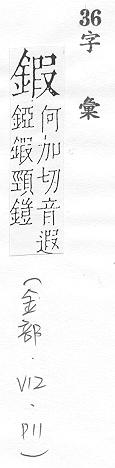 36
字彙
鍜
何加切音遐
錏鍜頸鎧
(金部.V12.P11)